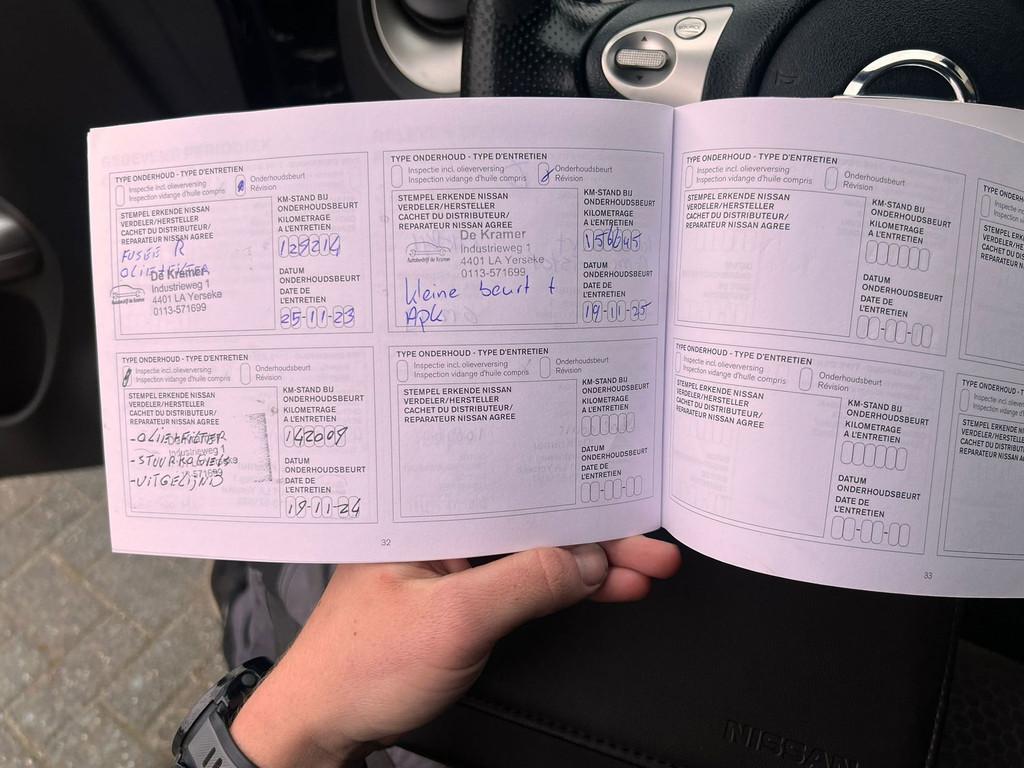 TYPE ONDERHOUD - TYPE D'ENTRETIEN
Inspectie incl. olieverversing
Inspection vidange d'huile compris
Onderhoudsbeurt
Révision
STEMPEL ERKENDE NISSAN
VERDELER/HERSTELLER
CACHET DU DISTRIBUTEUR/
REPARATEUR NISSAN AGREE
FUSEE R
OLIE+FILTER
De Kramer
Industrieweg 1
4401 LA Yerseke
0113-571699
KM-STAND BIJ
ONDERHOUDSBEURT
KILOMETRAGE
A L'ENTRETIEN
128214
DATUM
ONDERHOUDSBEURT
DATE DE
L'ENTRETIEN
25-11-23
TYPE ONDERHOUD - TYPE D'ENTRETIEN
Inspectie incl. olieverversing
Inspection vidange d'huile compris
Onderhoudsbeurt
Révision
STEMPEL ERKENDE NISSAN
VERDELER/HERSTELLER
CACHET DU DISTRIBUTEUR/
REPARATEUR NISSAN AGREE
De Kramer
Industrieweg 1
4401 LA Yerseke
0113-571699
Autobedrijf de Kramer
kleine beurt +
Apk
KM-STAND BIJ
ONDERHOUDSBEURT
KILOMETRAGE
A L'ENTRETIEN
156645
DATUM
ONDERHOUDSBEURT
DATE DE
L'ENTRETIEN
19-11-25
TYPE ONDERHOUD - TYPE D'ENTRETIEN
Inspectie incl. olieverversing
Inspection vidange d'huile compris
Onderhoudsbeurt
Révision
STEMPEL ERKENDE NISSAN
VERDELER/HERSTELLER
CACHET DU DISTRIBUTEUR/
REPARATEUR NISSAN AGREE
-OLIE+FILTER
Industrieweg 1
-STUURKOGELS
-571699
-UITGELIJND
KM-STAND BIJ
ONDERHOUDSBEURT
KILOMETRAGE
A L'ENTRETIEN
142009
DATUM
ONDERHOUDSBEURT
DATE DE
L'ENTRETIEN
19-11-24
TYPE ONDERHOUD - TYPE D'ENTRETIEN
Inspectie incl. olieverversing
Inspection vidange d'huile compris
Onderhoudsbeurt
Révision
STEMPEL ERKENDE NISSAN
VERDELER/HERSTELLER
CACHET DU DISTRIBUTEUR/
REPARATEUR NISSAN AGREE
KM-STAND BIJ
ONDERHOUDSBEURT
KILOMETRAGE
A L'ENTRETIEN
DATUM
ONDERHOUDSBEURT
DATE DE
L'ENTRETIEN
32
TYPE ONDERHOUD - TYPE D'ENTRETIEN
Inspectie incl. olieverversing
Inspection vidange d'huile compris
Onderhoudsbeurt
Révision
STEMPEL ERKENDE NISSAN
VERDELER/HERSTELLER
CACHET DU DISTRIBUTEUR/
REPARATEUR NISSAN AGREE
KM-STAND BIJ
ONDERHOUDSBEURT
KILOMETRAGE
A L'ENTRETIEN
DATUM
ONDERHOUDSBEURT
DATE DE
L'ENTRETIEN
TYPE ONDERHOUD - TYPE D'ENTRETIEN
Inspectie incl. olieverversing
Inspection vidange d'huile compris
Onderhoudsbeurt
Révision
STEMPEL ERKENDE NISSAN
VERDELER/HERSTELLER
CACHET DU DISTRIBUTEUR/
REPARATEUR NISSAN AGREE
KM-STAND BIJ
ONDERHOUDSBEURT
KILOMETRAGE
A L'ENTRETIEN
DATUM
ONDERHOUDSBEURT
DATE DE
L'ENTRETIEN
33
SOURCE
NISSAN